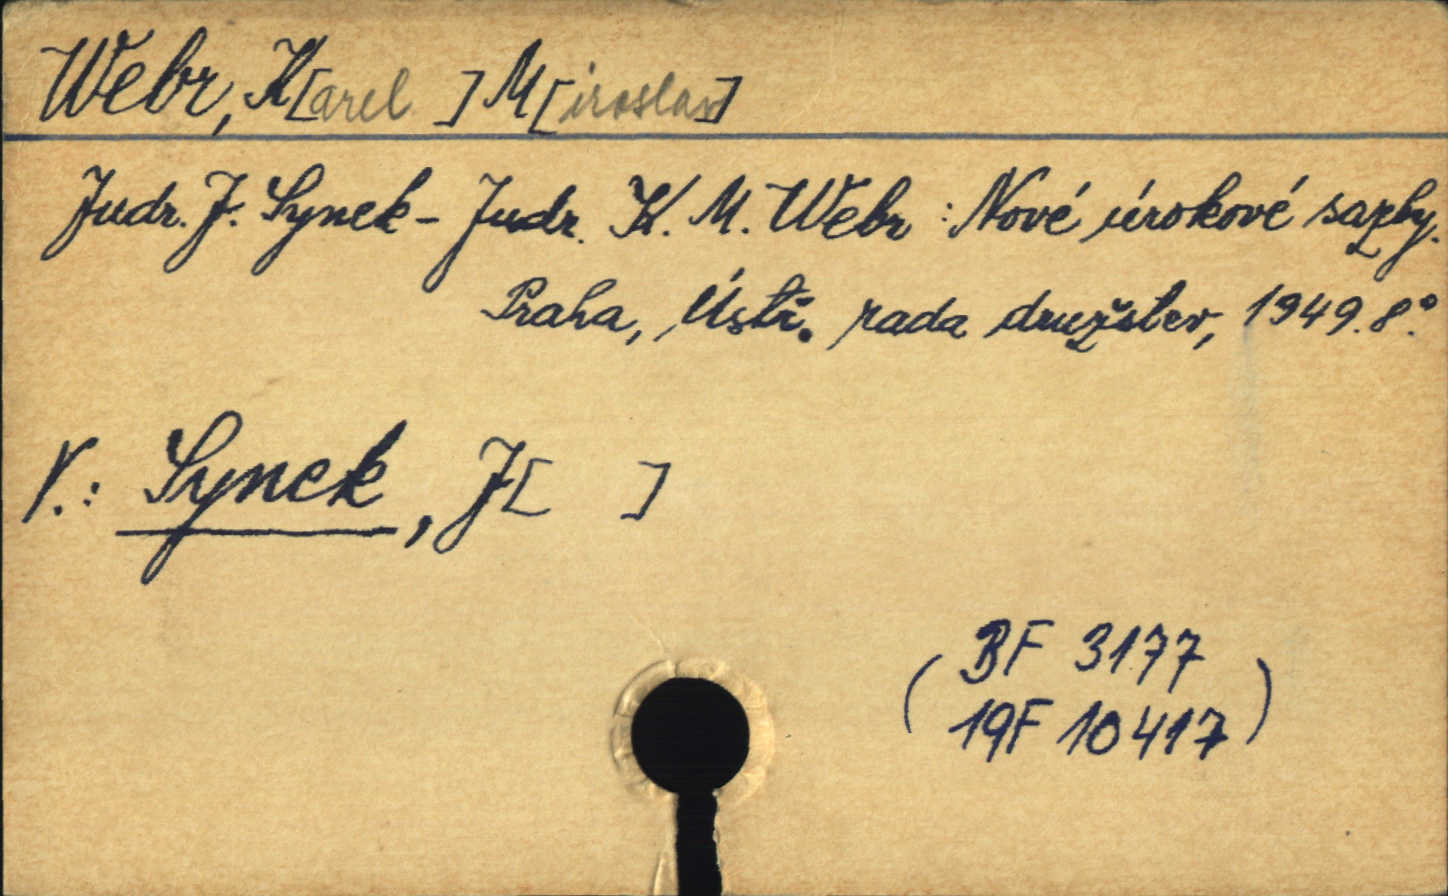 Webr, K[arel ] M[iroslav]
Judr. J. Synek - Judr. K. M. Webr : Nové úrokové sazby.
Praha, Ústř. rada družstev, 1949. 8°.
V.: Synek, J[ ]
( BF 3177
19F 10417 )